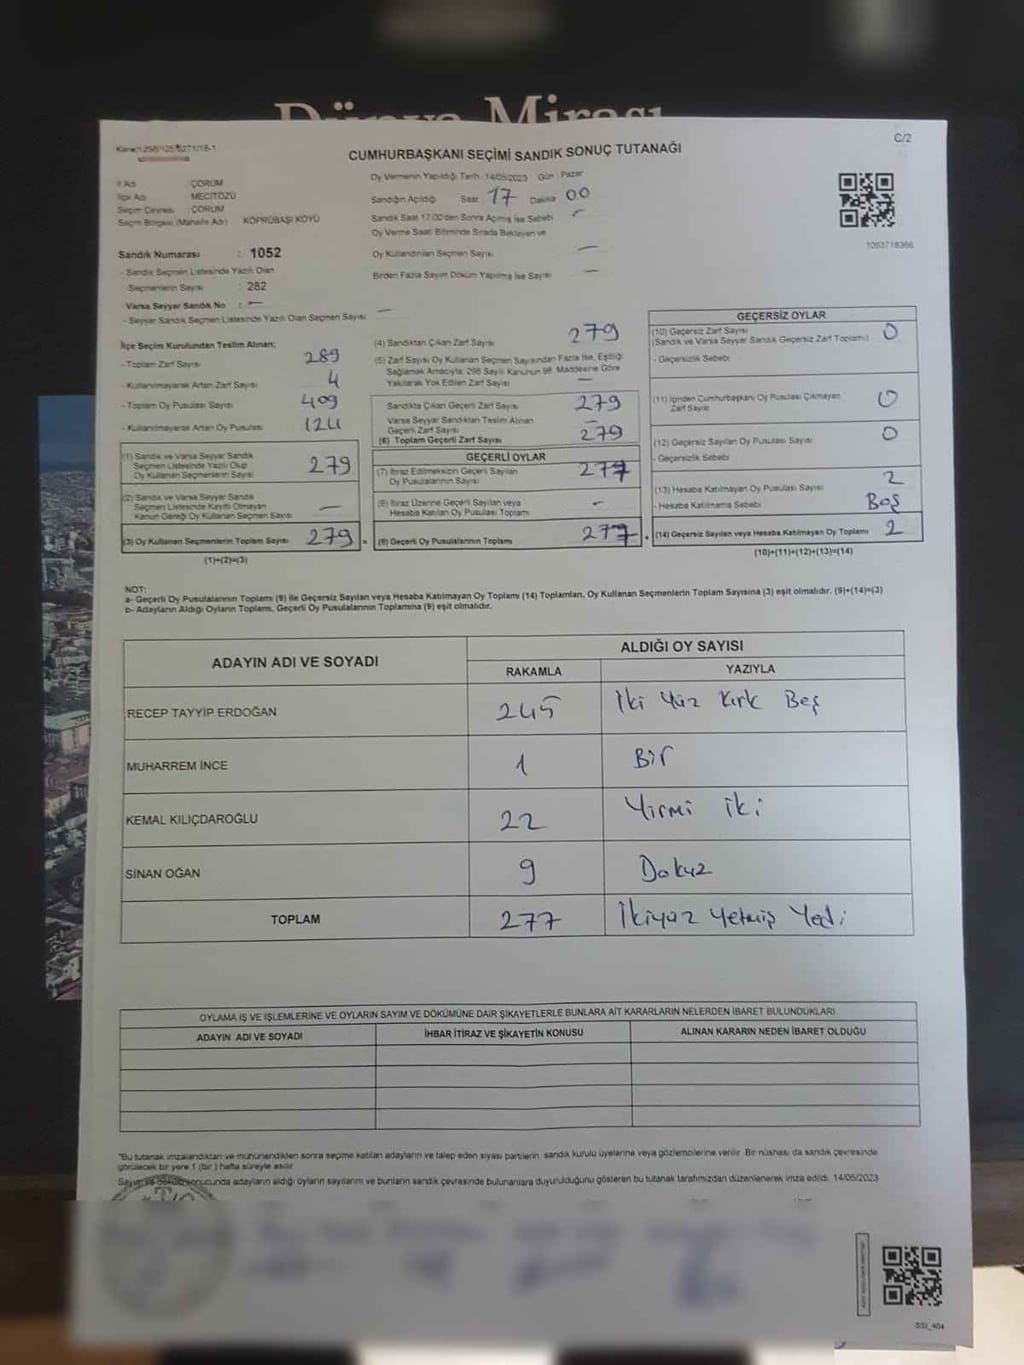 Dünya Mirası
C/2
CUMHURBAŞKANI SEÇİMİ SANDIK SONUÇ TUTANAĞI
İl Adı : ÇORUM
İlçe Adı : MECİTÖZÜ
Seçim Çevresi : ÇORUM
Seçim Bölgesi (Mahalle Adı) KÖPRÜBAŞI KÖYÜ
Oy Vermenin Yapıldığı Tarih 14/05/2023 Gün : Pazar
Sandığın Açıldığı Saat 17 Dakika 00
Sandık Saat 17:00'den Sonra Açılmış İse Sebebi
Oy Verme Saati Bitiminde Sırada Bekleyen ve
Oy Kullandırılan Seçmen Sayısı —
Birden Fazla Sayım Döküm Yapılmış İse Sayısı —
1093718366
Sandık Numarası : 1052
- Sandık Seçmen Listesinde Yazılı Olan
Seçmenlerin Sayısı : 282
Varsa Seyyar Sandık No : —
- Seyyar Sandık Seçmen Listesinde Yazılı Olan Seçmen Sayısı —
İlçe Seçim Kurulundan Teslim Alınan;
- Toplam Zarf Sayısı 289
- Kullanılmayarak Artan Zarf Sayısı 4
- Toplam Oy Pusulası Sayısı 409
- Kullanılmayarak Artan Oy Pusulası
(1) Sandık ve Varsa Seyyar Sandık
Seçmen Listesinde Yazılı Olup
Oy Kullanan Seçmenlerin Sayısı 279
(2) Sandık ve Varsa Seyyar Sandık
Seçmen Listesinde Kaydı Olmayan
Kanun Gereği Oy Kullanan Seçmen Sayısı —
(3) Oy Kullanan Seçmenlerin Toplam Sayısı 279
(1)+(2)=(3)
(4) Sandıktan Çıkan Zarf Sayısı 279
(5) Zarf Sayısı Oy Kullanan Seçmen Sayısından Fazla İse, Eşitliği
Sağlamak Amacıyla; 298 Sayılı Kanunun 98. Maddesine Göre
Yakılarak Yok Edilen Zarf Sayısı —
Sandıkta Çıkan Geçerli Zarf Sayısı 279
Varsa Seyyar Sandıktan Teslim Alınan
Geçerli Zarf Sayısı —
(6) Toplam Geçerli Zarf Sayısı 279
GEÇERLİ OYLAR
(7) İtiraz Edilmeksizin Geçerli Sayılan
Oy Pusulalarının Sayısı 277
(8) İtiraz Üzerine Geçerli Sayılan veya
Hesaba Katılan Oy Pusulası Toplamı -
= (9) Geçerli Oy Pusulalarının Toplamı 277
GEÇERSİZ OYLAR
(10) Geçersiz Zarf Sayısı 0
(Sandık ve Varsa Seyyar Sandık Geçersiz Zarf Toplamı)
- Geçersizlik Sebebi
(11) İçinden Cumhurbaşkanı Oy Pusulası Çıkmayan
Zarf Sayısı 0
(12) Geçersiz Sayılan Oy Pusulası Sayısı 0
- Geçersizlik Sebebi
(13) Hesaba Katılmayan Oy Pusulası Sayısı 2
- Hesaba Katılmama Sebebi Boş
+ (14) Geçersiz Sayılan veya Hesaba Katılmayan Oy Toplamı 2
(10)+(11)+(12)+(13)=(14)
NOT:
a- Geçerli Oy Pusulalarının Toplamı (9) ile Geçersiz Sayılan veya Hesaba Katılmayan Oy Toplamı (14) Toplamları, Oy Kullanan Seçmenlerin Toplam Sayısına (3) eşit olmalıdır. (9)+(14)=(3)
b- Adayların Aldığı Oyların Toplamı, Geçerli Oy Pusulalarının Toplamına (9) eşit olmalıdır.
ADAYIN ADI VE SOYADI
ALDIĞI OY SAYISI
RAKAMLA YAZIYLA
RECEP TAYYİP ERDOĞAN 245 İki Yüz Kırk Beş
MUHARREM İNCE 1 Bir
KEMAL KILIÇDAROĞLU 22 Yirmi iki
SİNAN OĞAN 9 Dokuz
TOPLAM 277 İkiyüz Yetmiş Yedi
OYLAMA İŞ VE İŞLEMLERİNE VE OYLARIN SAYIM VE DÖKÜMÜNE DAİR ŞİKAYETLERLE BUNLARA AİT KARARLARIN NELERDEN İBARET BULUNDUKLARI
ADAYIN ADI VE SOYADI İHBAR İTİRAZ VE ŞİKAYETİN KONUSU ALINAN KARARIN NEDEN İBARET OLDUĞU
"Bu tutanak imzalandıktan ve mühürlendikten sonra seçime katılan adayların ve talep eden siyasi partilerin sandık kurulu üyelerine veya gözlemcilerine verilir. Bir nüshası da sandık çevresinde
görülecek bir yere 1 (bir) hafta süreyle asılır
Sayım ve döküm sonucunda adayların aldığı oyların sayılarını ve bunların sandık çevresinde bulunanlara duyurulduğunu gösteren bu tutanak tarafımızdan düzenlenerek imza edildi. 14/05/2023